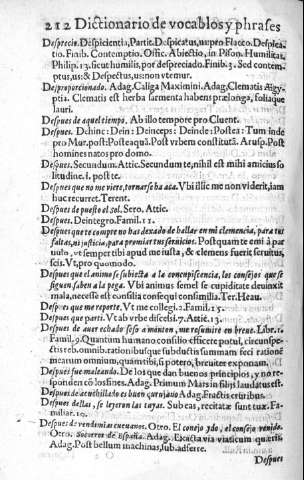 212 Dictionario de vocablos y phrases
Desprecio. Despicientia, Partit. Despicatus, us, pro Flacco. Despica-
tio. Finib. Contemptio. Offic. Abiectio, in Pison. Humilitas,
Philip. 13. sicut humilis, por despreciado. Finib. 3. Sed contem-
ptus, us: & Despectus, us: non vtemur.
Desproporcionado. Adag. Caliga Maximini. Adag. Clematis Ægy-
ptia. Clematis est herba sarmenta habens prælonga, foliaque
lauri.
Despues de aquel tiempo, Ab illo tempore pro Cluent.
Despues. Dehinc: Dein: Deinceps: Deinde: Postea: Tum inde
pro Mur. post: Posteaquã. Post vrbem constitutã. Arusp. Post
homines natos pro domo.
Despues. Secundum. Attic. Secundum te, nihil est mihi amicius so
litudine. I. post te.
Despues que no me viere, tornarse ha aca. Vbi illic me non viderit, iam
huc recurret. Terent.
Despues de puesto el sol. Sero. Attic.
Despues. Deintegro. Famil. 12.
Despues que te compre no has dexado de hallar en mi clemencia, para tus
faltas, ni justicia, para premiar tus seruicios. Postquam te emi à par
uulo, vt semper tibi apud me iusta, & clemens fuerit seruitus,
scis. Vt, pro quomodo.
Despues que el animo se subiecta a la concupiscencia, los consejos que se
siguen saben a la pega. Vbi animus semel se cupiditate deuinxit
mala, necesse est consilia consequi consimilia. Ter. Heau.
Despues que me reporte, Vt me collegi. 2. Famil. 15.
Despues que parti. Vt ab vrbe discessi. 7. Attic. 13.
Despues de auer echado seso a monton, me resumire en breue. Libr. 1.
Famil. 9. Quantum humano consilio efficere potui, circunspe-
ctis reb. omnib. rationibusque subductis summam feci rationẽ
mearum omnium, quam tibi, si potero, breuiter exponam.
Despues fue maleando. De los que dan buenos principios, y no re-
sponden cõ los fines. Adag. Primum Marsin fibis laudatus est.
Despues de acuchillado es buen çurujano Adag. Fractis cruribus.
Despues dellas, se leyeron las tuyas. Sub eas, recitatæ sunt tuæ. Fa-
miliar. 10.
Despues de vendimias cueuanos. Otro. El conejo ydo, el consejo venido.
Otro. Socorros de España. Adag. Exacta via viaticum quæris.
Adag. Post bellum machinas, sub, adferre.
Despues